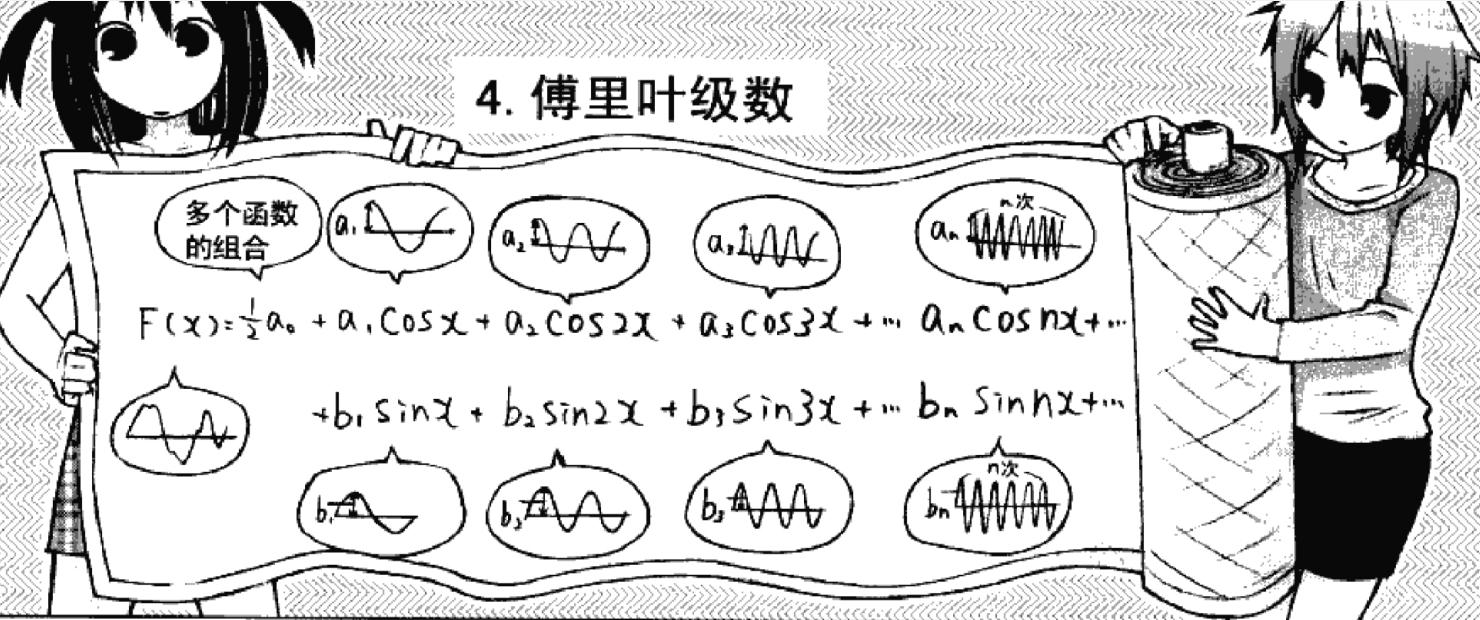 4. 傅里叶级数
多个函数
的组合
a₁
a₂
a₃
n次
aₙ
F(x)=½a₀ + a₁cosx + a₂cos2x + a₃cos3x +… aₙcosnx+…
+b₁sinx + b₂sin2x +b₃sin3x +… bₙsinnx+…
b₁
b₂
b₃
n次
bₙ